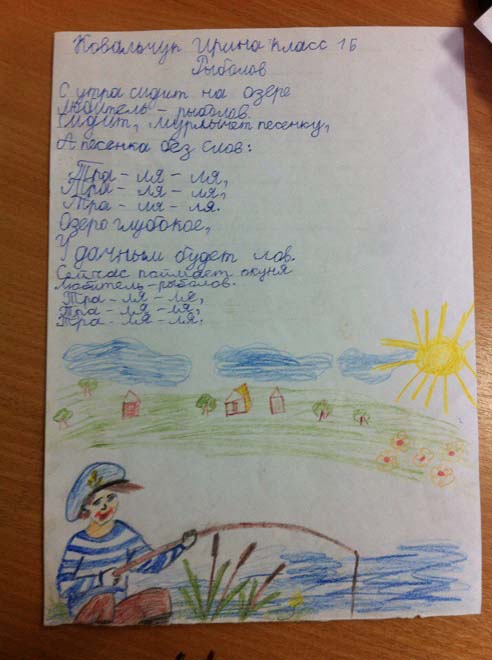 Ковальчук Ирина класс 1Б
Рыболов
С утра сидит на озере
Любитель - рыболов.
Сидит, мурлычет песенку,
А песенка без слов:
Тра - ля - ля,
Тра - ля - ля,
Тра - ля - ля.
Озеро глубокое,
Удачным будет лов.
Сейчас поймает окуня
Любитель - рыболов.
Тра - ля - ля,
Тра - ля - ля,
Тра - ля - ля.